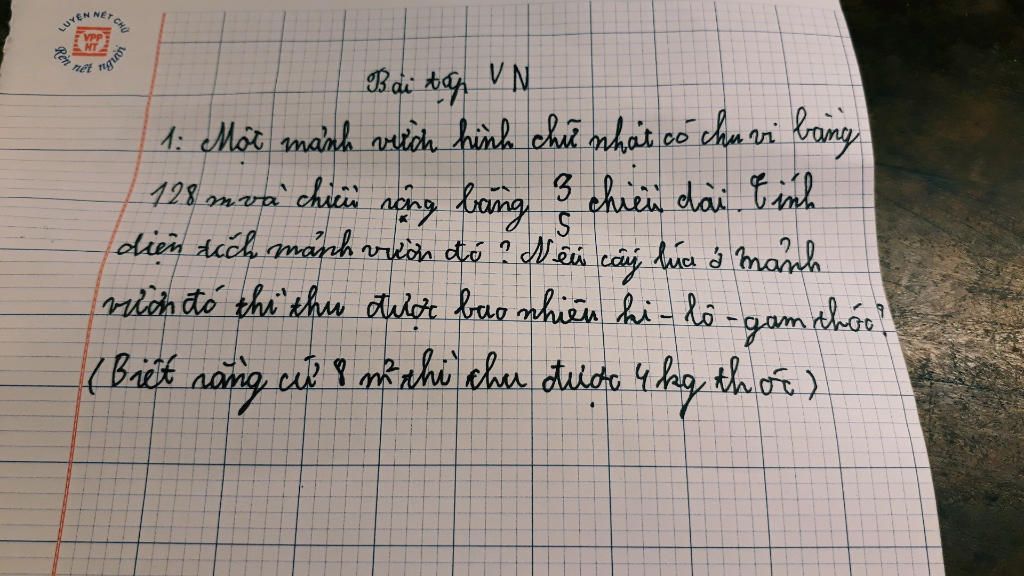 LUYỆN NÉT CHỮ
VPP
HT
Rèn nết người
Bài tập VN
1: Một mảnh vườn hình chữ nhật có chu vi bằng
128 m và chiều rộng bằng 3/5 chiều dài. Tính
diện tích mảnh vườn đó? Nếu cấy lúa ở mảnh
vườn đó thì thu được bao nhiêu ki-lô-gam thóc?
(Biết rằng cứ 8 m² thì thu được 4 kg thóc)